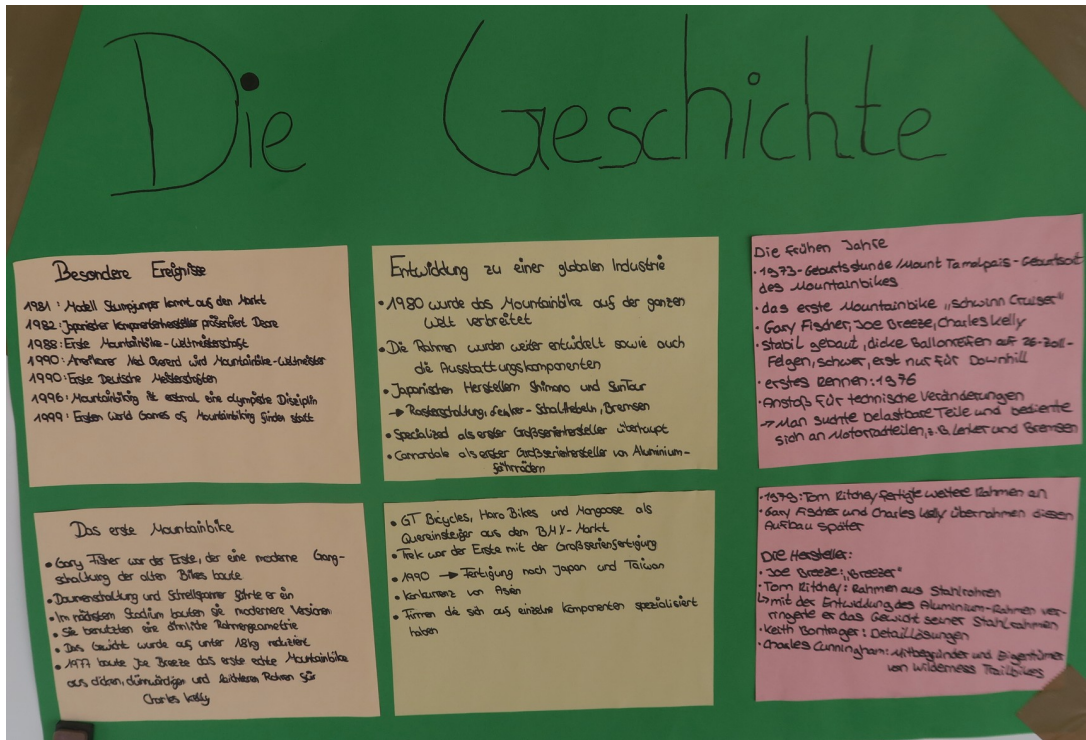 Die Geschichte
Besondere Ereignisse
1981: Modell Stumpjumper kommt auf den Markt
1982: Japanischer Komponentenhersteller präsentiert Deore
1988: Erste Mountainbike-Weltmeisterschaft
1990: Amerikaner Ned Overend wird Mountainbike-Weltmeister
1990: Erste Deutsche Meisterschaften
1996: Mountainbiking ist erstmal eine olympische Disziplin
1999: Ersten World Games of Mountainbiking finden statt
Das erste Mountainbike
• Gary Fisher war der Erste, der eine moderne Gang-
schaltung der alten Bikes baute
• Daumenschaltung und Schnellspanner führte er ein
• Im nächsten Stadium bauten sie modernere Versionen
• Sie benutzten eine ähnliche Rahmengeometrie
• Das Gewicht wurde auf unter 18kg reduziert
• 1977 baute Joe Breeze das erste echte Mountainbike
aus dicken, dünnwandigen und leichteren Rohren für
Charles Kelly
Entwicklung zu einer globalen Industrie
• 1980 wurde das Mountainbike auf der ganzen
Welt verbreitet
• Die Rahmen wurden weiter entwickelt sowie auch
die Ausstattungskomponenten
• Japanischen Herstellern Shimano und SunTour
→ Rasterschaltung, Lenker-Schalthebeln, Bremsen
• Specialized als erster Großserienhersteller überhaupt
• Cannondale als erster Großserienhersteller von Aluminium-
fahrrädern
• GT Bicycles, Haro Bikes und Mongoose als
Quereinsteiger aus dem BMX-Markt
• Trek war der Erste mit der Großserienfertigung
• 1990 → Fertigung nach Japan und Taiwan
• Konkurrenz von Asien
• Firmen die sich auf einzelne Komponenten spezialisiert
haben
Die frühen Jahre
• 1973-Geburtsstunde/Mount Tamalpais-Geburtsort
des Mountainbikes
• das erste Mountainbike „Schwinn Cruiser"
• Gary Fischer, Joe Breeze, Charles Kelly
• stabil gebaut, dicke Ballonreifen auf 26-Zoll-
Felgen, schwer, erst nur für Downhill
• erstes Rennen: 1976
• Anstoß für technische Veränderungen
→ Man suchte belastbare Teile und bediente
sich an Motorradteilen, z.B. Lenker und Bremsen
• 1979: Tom Ritchey fertigte weitere Rahmen an
• Gary Fischer und Charles Kelly übernahmen diesen
Aufbau später
Die Hersteller:
• Joe Breeze: „Breezer"
• Tom Ritchey: Rahmen aus Stahlrohren
↳ mit der Entwicklung des Aluminium-Rahmen ver-
ringerte er das Gewicht seiner Stahlrahmen
• Keith Bontrager: Detaillösungen
• Charles Cunningham: Mitbegründer und Eigentümer
von Wilderness Trailbikes